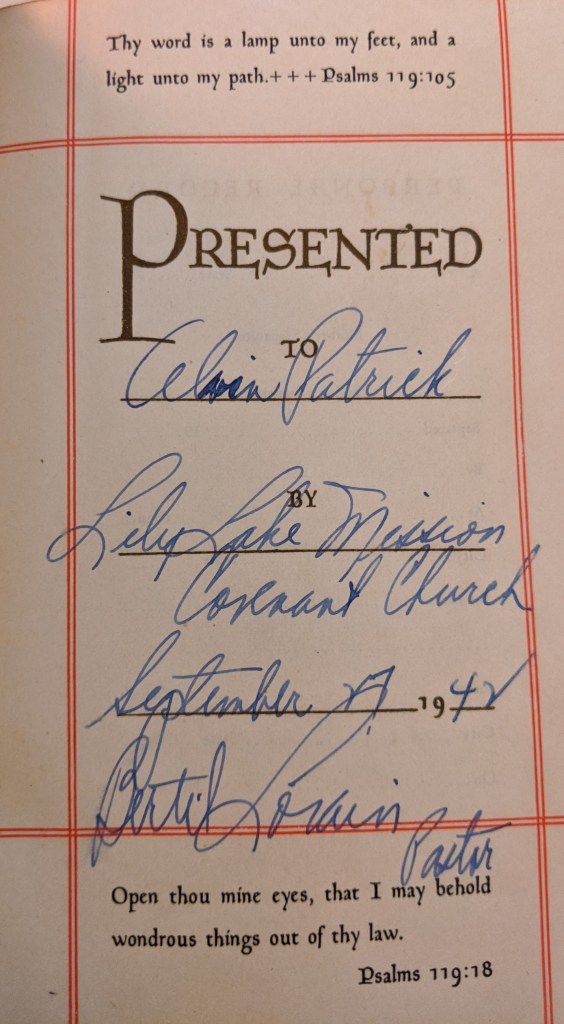 Thy word is a lamp unto my feet, and a
light unto my path.+++Psalms 119:105
PRESENTED
TO
Alvin Patrick
BY
Lily Lake Mission
Covenant Church
September 27 1942
Bertil
Pastor
Open thou mine eyes, that I may behold
wondrous things out of thy law.
Psalms 119:18